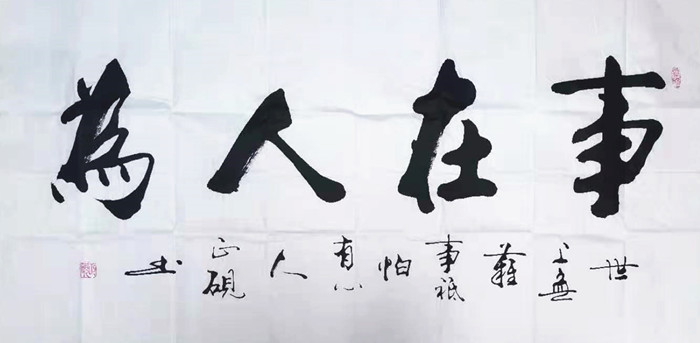 事在人為
世上無難事祇怕有心人
正硯书